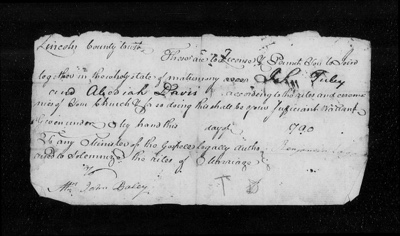 Lincoln County to wit
These are to License & Permit You to Join
together in the holy state of matrimony John Tuley
and Davis according to the rites and ceremo
nies of Your Church & for so doing this shall be your sufficient Warrant
Given under my hand this day of 1790
To any Minister of the Gospel legally autho
rized to solemnize the rites of Marriage
Mr. John Bailey